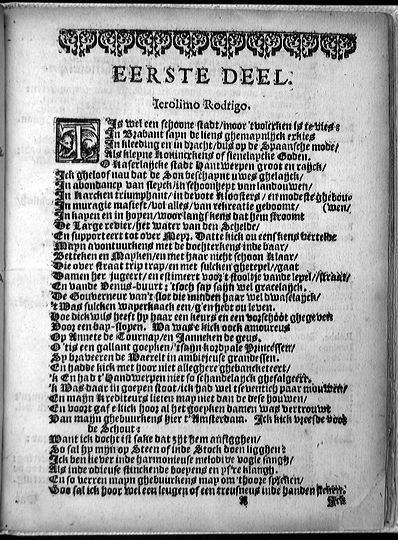 EERSTE DEEL.
Ierolimo Rodrigo.
T'Is wel een schoone stadt/moor 't volcxken is te vies:
In Brabant sayn de liens ghemaynlijck exkies
In kleeding en in dracht/dus op de Spaansche mode/
Als kleyne Koninckxkens of sienelaycke Goden.
O Kaserlaijcke stadt Hantwerpen groot en rayck/
Ick gheloof nau dat de Son beschaynt uwes ghelayck/
In abondancy van sleyck/in schoonheyt van landouwen/
In Karcken triumphant/ in devote Kloosters/ en modeste ghebou-
In muragie masieft/ dol alles/ van rekreatie geboomt/ (wen/
In kayen en in hopen/ woor langs kens dat hem stroomt
De Large revier/ het water van den Schelde/
En supporteert tot over Meyr. Datte kick ou eens kens vertelde
Mayn avontuurkens met de dochterkens inde baar/
Betteken en Mayken/ en met haar nicht schoon Klaar/
Die over straat trip trap/ en met sulcken ghetrpel/ gaat
Damen her jugeert/ en estimeert voor 't stooltje vande lepel/ /straat/
En vande Venus-buurt: 'tsoch say sajn wel gracelayck.
De Gouverneur van 't slot die minden haar wel dwaselayck/
't Was sulcken waperkaack een/ g'en hebt ou leven.
Hoe dickwils heeft hy haar een keurs en een vorschoot ghegeven
Voor een bay-slopen. Wa was e kick oock amoureus
Op Annete de Tournay/en Janneken de geus.
O 'tis een gallant goepken/ 'tsayn kordyale Princessen/
Sy braveeren de Waerelt in ambitieuse grandessen.
En hadde kick met hoor niet allegheer ghebancketeert/
'k En had t' Handtwerpen niet so schandelayck ghefalgeert.
'k Was daar in goepen stoot/ick had wel t'seventich paar mouwen/
En mayn Krediteurs lieten may niet dan de dese houwen/
En voorz gaf e kick hoor al het goepken damen was vertrouwt
Van mayn ghebuurkens hier t'Amsterdam. Ick kick vreesde voor
de Schout:
Want ick docht ist sake dat zijt hem ansegghen/
So sal hy mijn op Steen of inde Stock doen ligghen:
Ick ben liever inde harmonieuse melodi ve vogle sangh/
Als inde odieuse stinckende boeyens en ys're klangh.
En so verren mayn ghebuurkens may om 'thoore spreken/
Soo sal ick hoor wel een leugen of een treusneus inde handen steken.
A